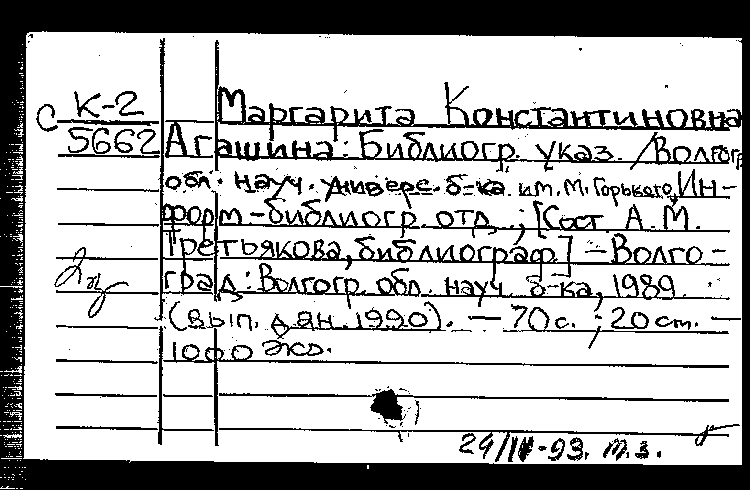 С К-2 Маргарита Константиновна
5662 Агашина: Библиогр. указ. / Волгогр.
обл. науч. универс. б-ка им. М. Горького, Ин-
форм-библиогр. отд.; [Сост. А. М.
Третьякова, библиограф.] - Волго-
град: Волгогр. обл. науч. б-ка, 1989
(вып. дан. 1990). — 70 с. ; 20 см. —
1000 экз.
93. т.з.